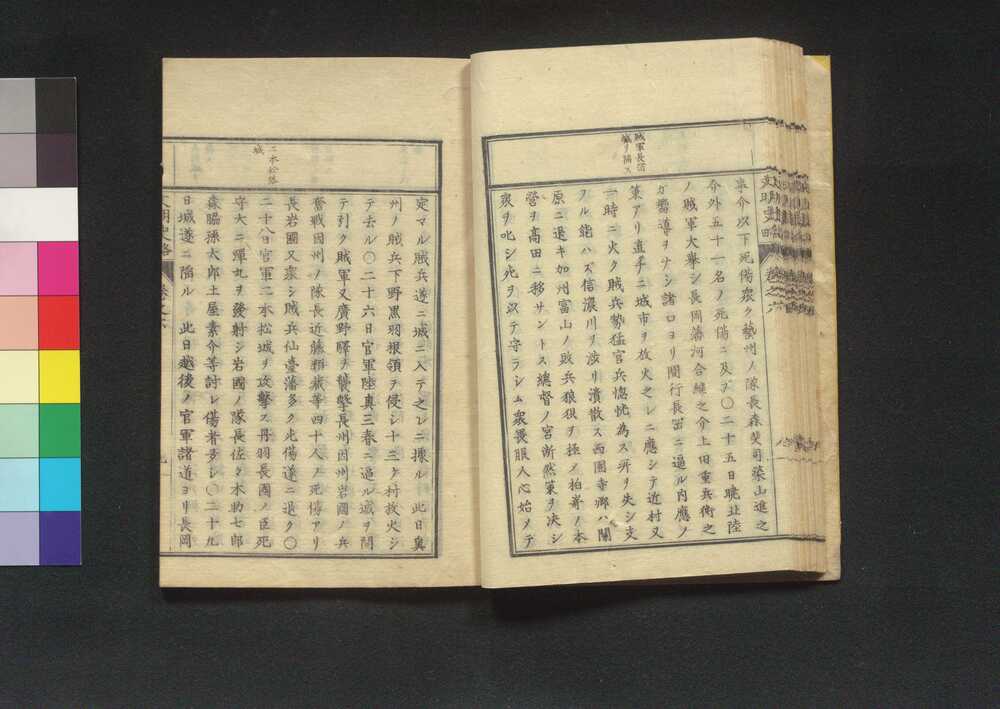 賊軍長岡
城ヲ陥ス
隼介以下死傷衆ク藝州ノ隊長森癸司築山進之
介外五十一名ノ死傷ニ及ブ〇二十五日暁北陸
ノ賊軍大擧シ長岡藩河合継之介上田重兵衛之
ガ嚮導ヲナシ諸口ヨリ間行長岡ニ逼ル内應ノ
策アリ直チニ城市ヲ放火之レニ應シテ近村又
一時ニ火ク賊兵勢猛官兵惚恍為ス所ヲ失シ支
フル能ハズ信濃川ヲ渡リ潰散ス西園寺卿ハ關
原ニ退キ加州富山ノ敗兵狼狽ヲ極ノ柏嵜ノ本
營ヲ高田ニ移サントス總督ノ宮断然策ヲ决シ
衆ヲ叱シ死ヲ以テ守ラシム衆畏服人心始メテ
文明史略
巻之六
二本松落
城
定マル賊兵遂ニ城ニ入テ之レニ據ル 此日奥
州ノ賊兵下野黒羽根領ヲ侵シ十三ケ村放火シ
テ去ル〇二十六日官軍陸奥三春ニ逼ル城ヲ開
テ引ク賊軍又廣野驛ヲ襲撃長州因州岩國ノ兵
奮戦因州ノ隊長近藤類蔵等四十人ノ死傷アリ
長岩國又衆シ賊兵仙臺藩多ク死傷遂ニ退ク〇
二十八日官軍二本松城ヲ攻撃ス丹羽長國ノ臣死
守大ニ彈丸ヲ發射シ岩國ノ隊長佐々木助七郎
森脇孫太郎土屋素介等討レ傷者多シ〇二十九
日城遂ニ陥ル 此日越後ノ官軍諸道ヨリ長岡